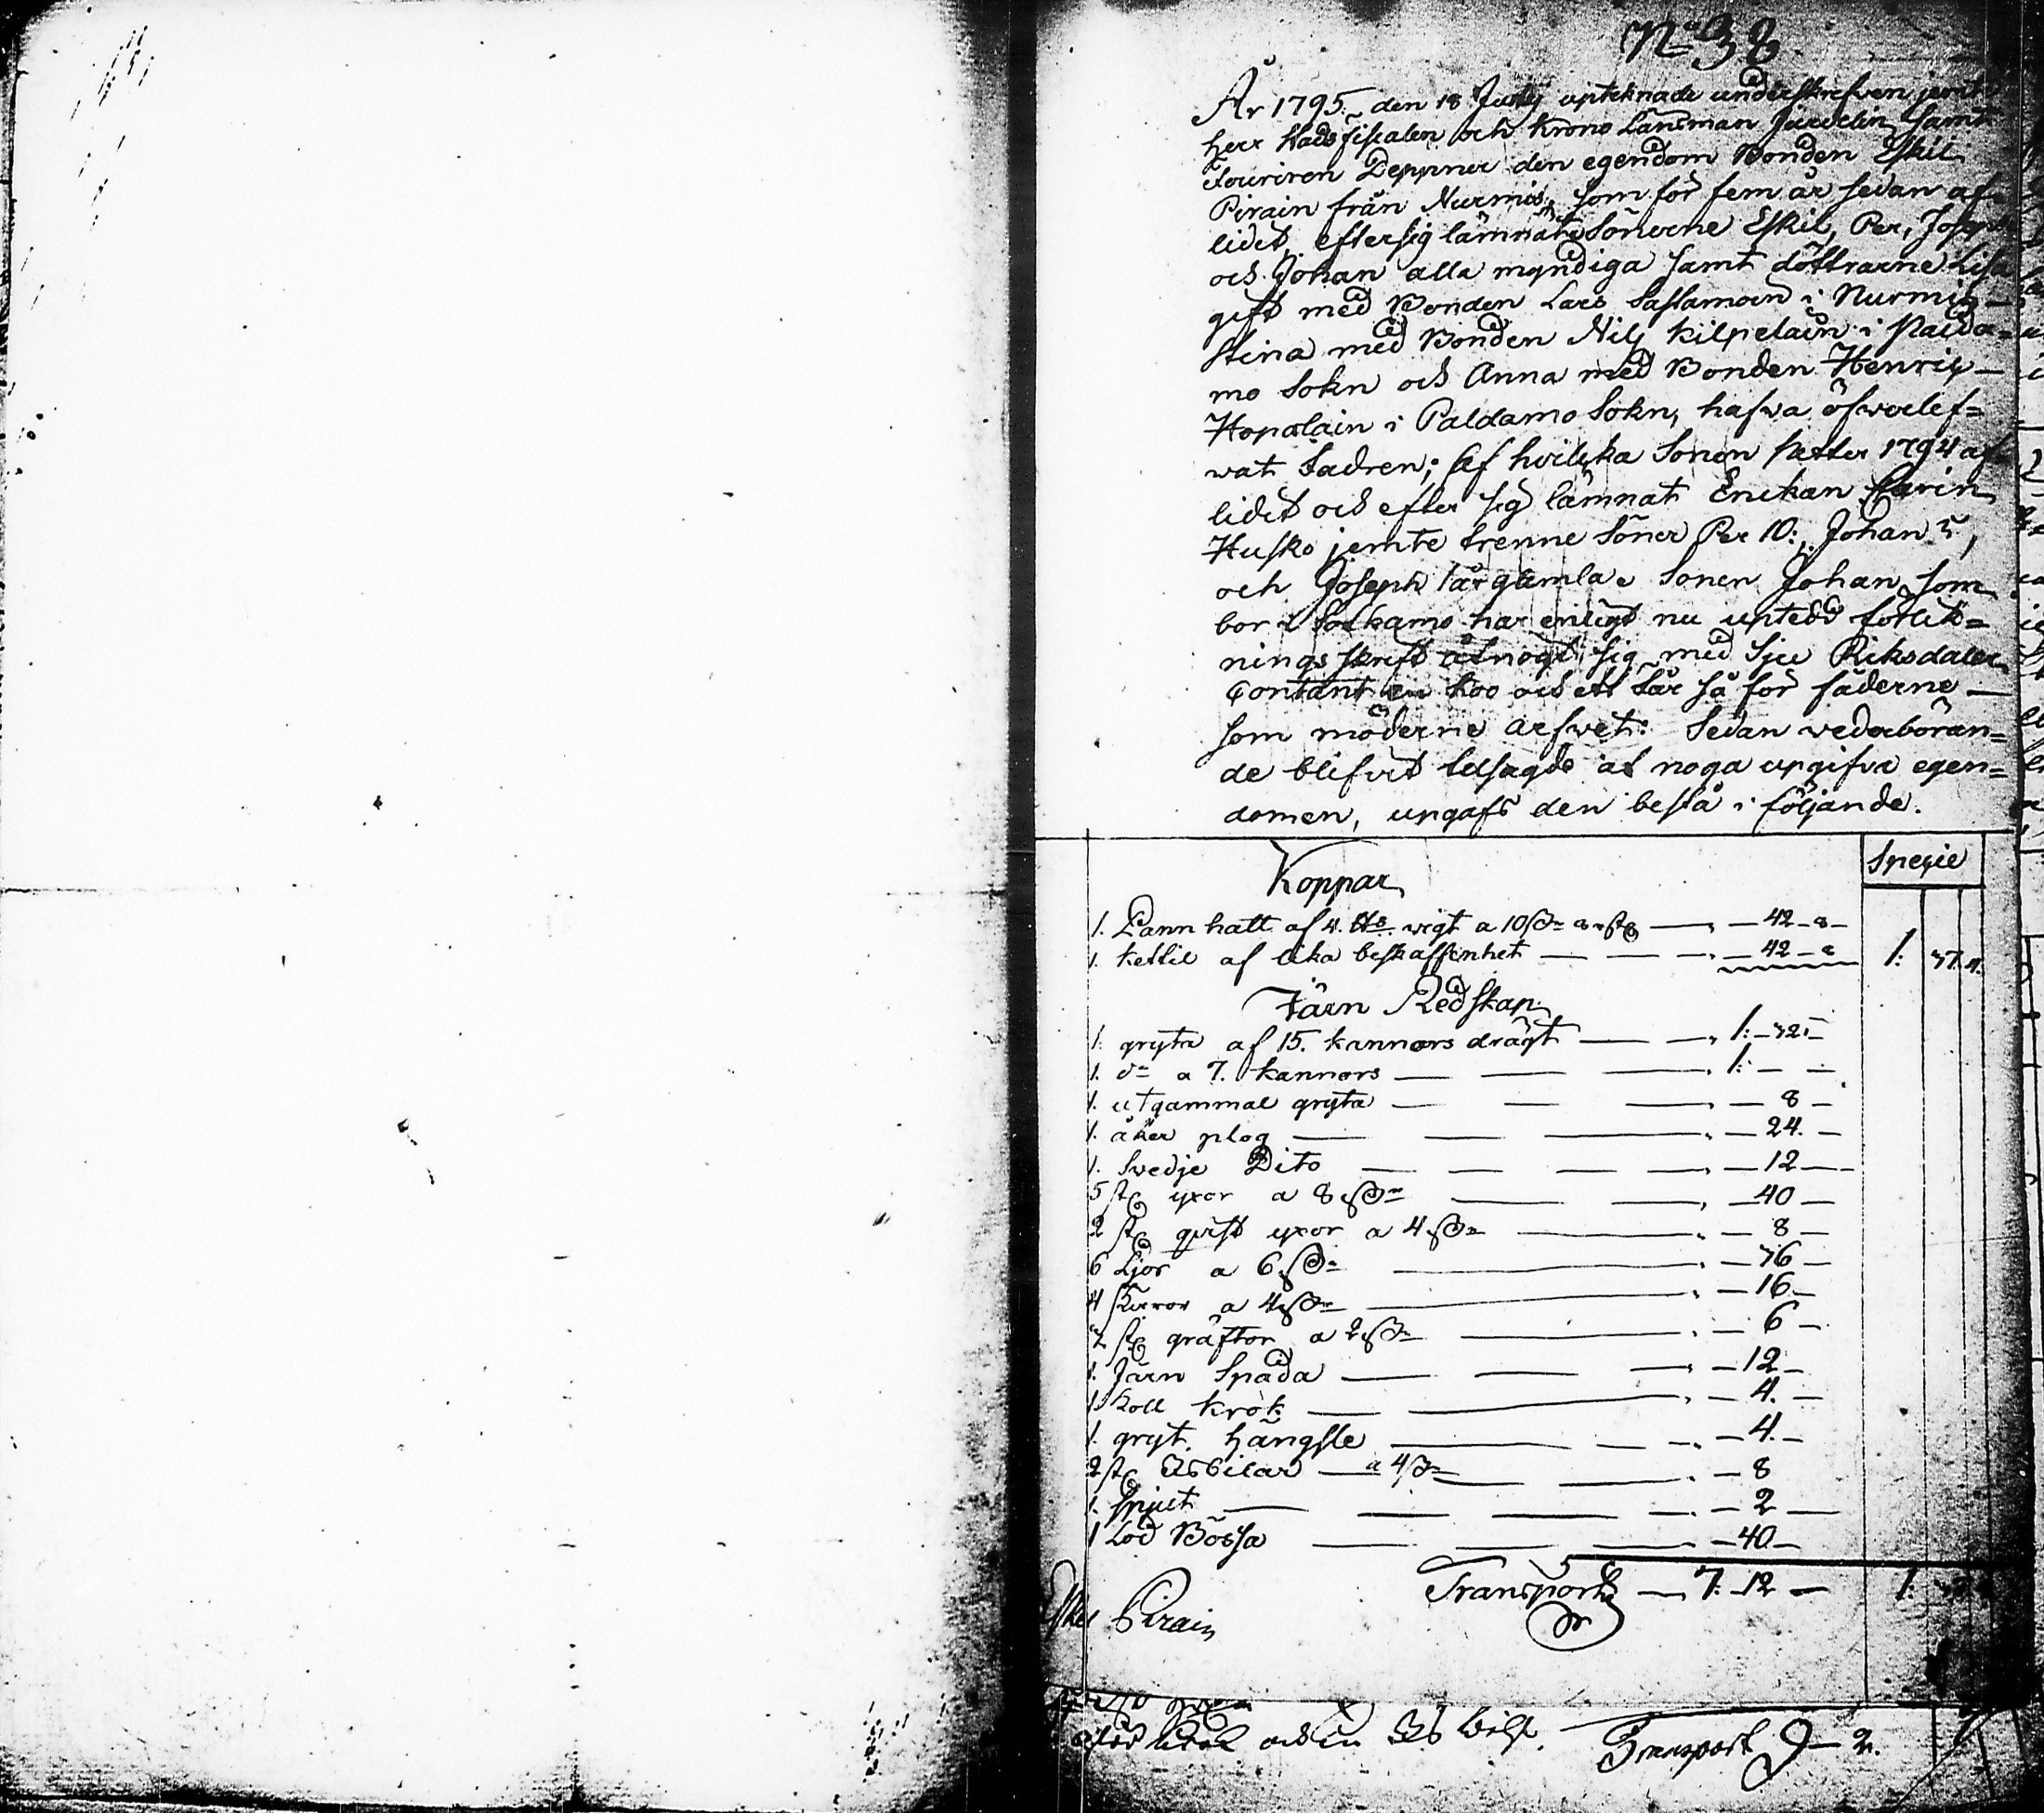 No 38
År 1795 den 18 July upteknade underskrefven jemte
herr Rådsfiscalen och Krono Länsman Juvelin samt
Fouriren Zeppner den egendom Bonden Eskil
Pirain från Nurmis, som för fem år sedan af=
lidet, eftersig lämnat Sönerne Eskil, Per, Joseph
och Johan alla myndiga samt döttrarne Lisa
gift med Bonden Lars Sastamoin i Nurmis
Stina med Bonden Nils Kilpelain i Palda=
mo Sokn och Anna med Bonden Henric
Hopalain i Paldamo Sokn, hafva öfverlef=
wat fadren; Af hvilka Sonen Petter 1794 af=
lidit och efter sig lämnat Enckan Carin
Husko jemte trenne Söner Per 10: Johan 5,
och Joseph 1 år gamla. Sonen Johan som
bor i Sotkamo har enligt nu uptedd förlik=
nings skrift åtnögt sig med Sju Riksdaler
Contant en koo och ett får så för fäderne
som möderne arfvet: Sedan vederböran=
de blifvit tilsagde at noga upgifva egen=
domen, upgafs den bestå i följande.
Specie
Koppar
1. Pann hatt af 4. vigt a 10 — 42 - 8 -
1. kettil af lika beskaffenhet — 42 - 8 1: 37. 4.
Järn Redskap
1. gryta af 15. kannors drägt — 1: - 32 -
1. do a 7. kannors — 1: - -
1. utgammal gryta — 8 -
1. åker plog — 24. -
1. Svedje Dito — 12 -
5 st yxor a 8 — 40 -
2 st qvist yxor a 4 — 8 -
6 Ljor a 6 — 36 -
4 Skäror a 4 — 16 -
3 st gräftor a 2 — 6 -
1. Järn Spada — 12 -
1 Koll krok — 4. -
1. gryt. hängsle — 4. -
2 st Isbilar a 4 — 8
1. Spjut — 2 -
1 Lod Bössa — 40 -
Transport — 7. 12 — 1:
Eskel Pirain
och en Is bill. Transport 9 - 2.